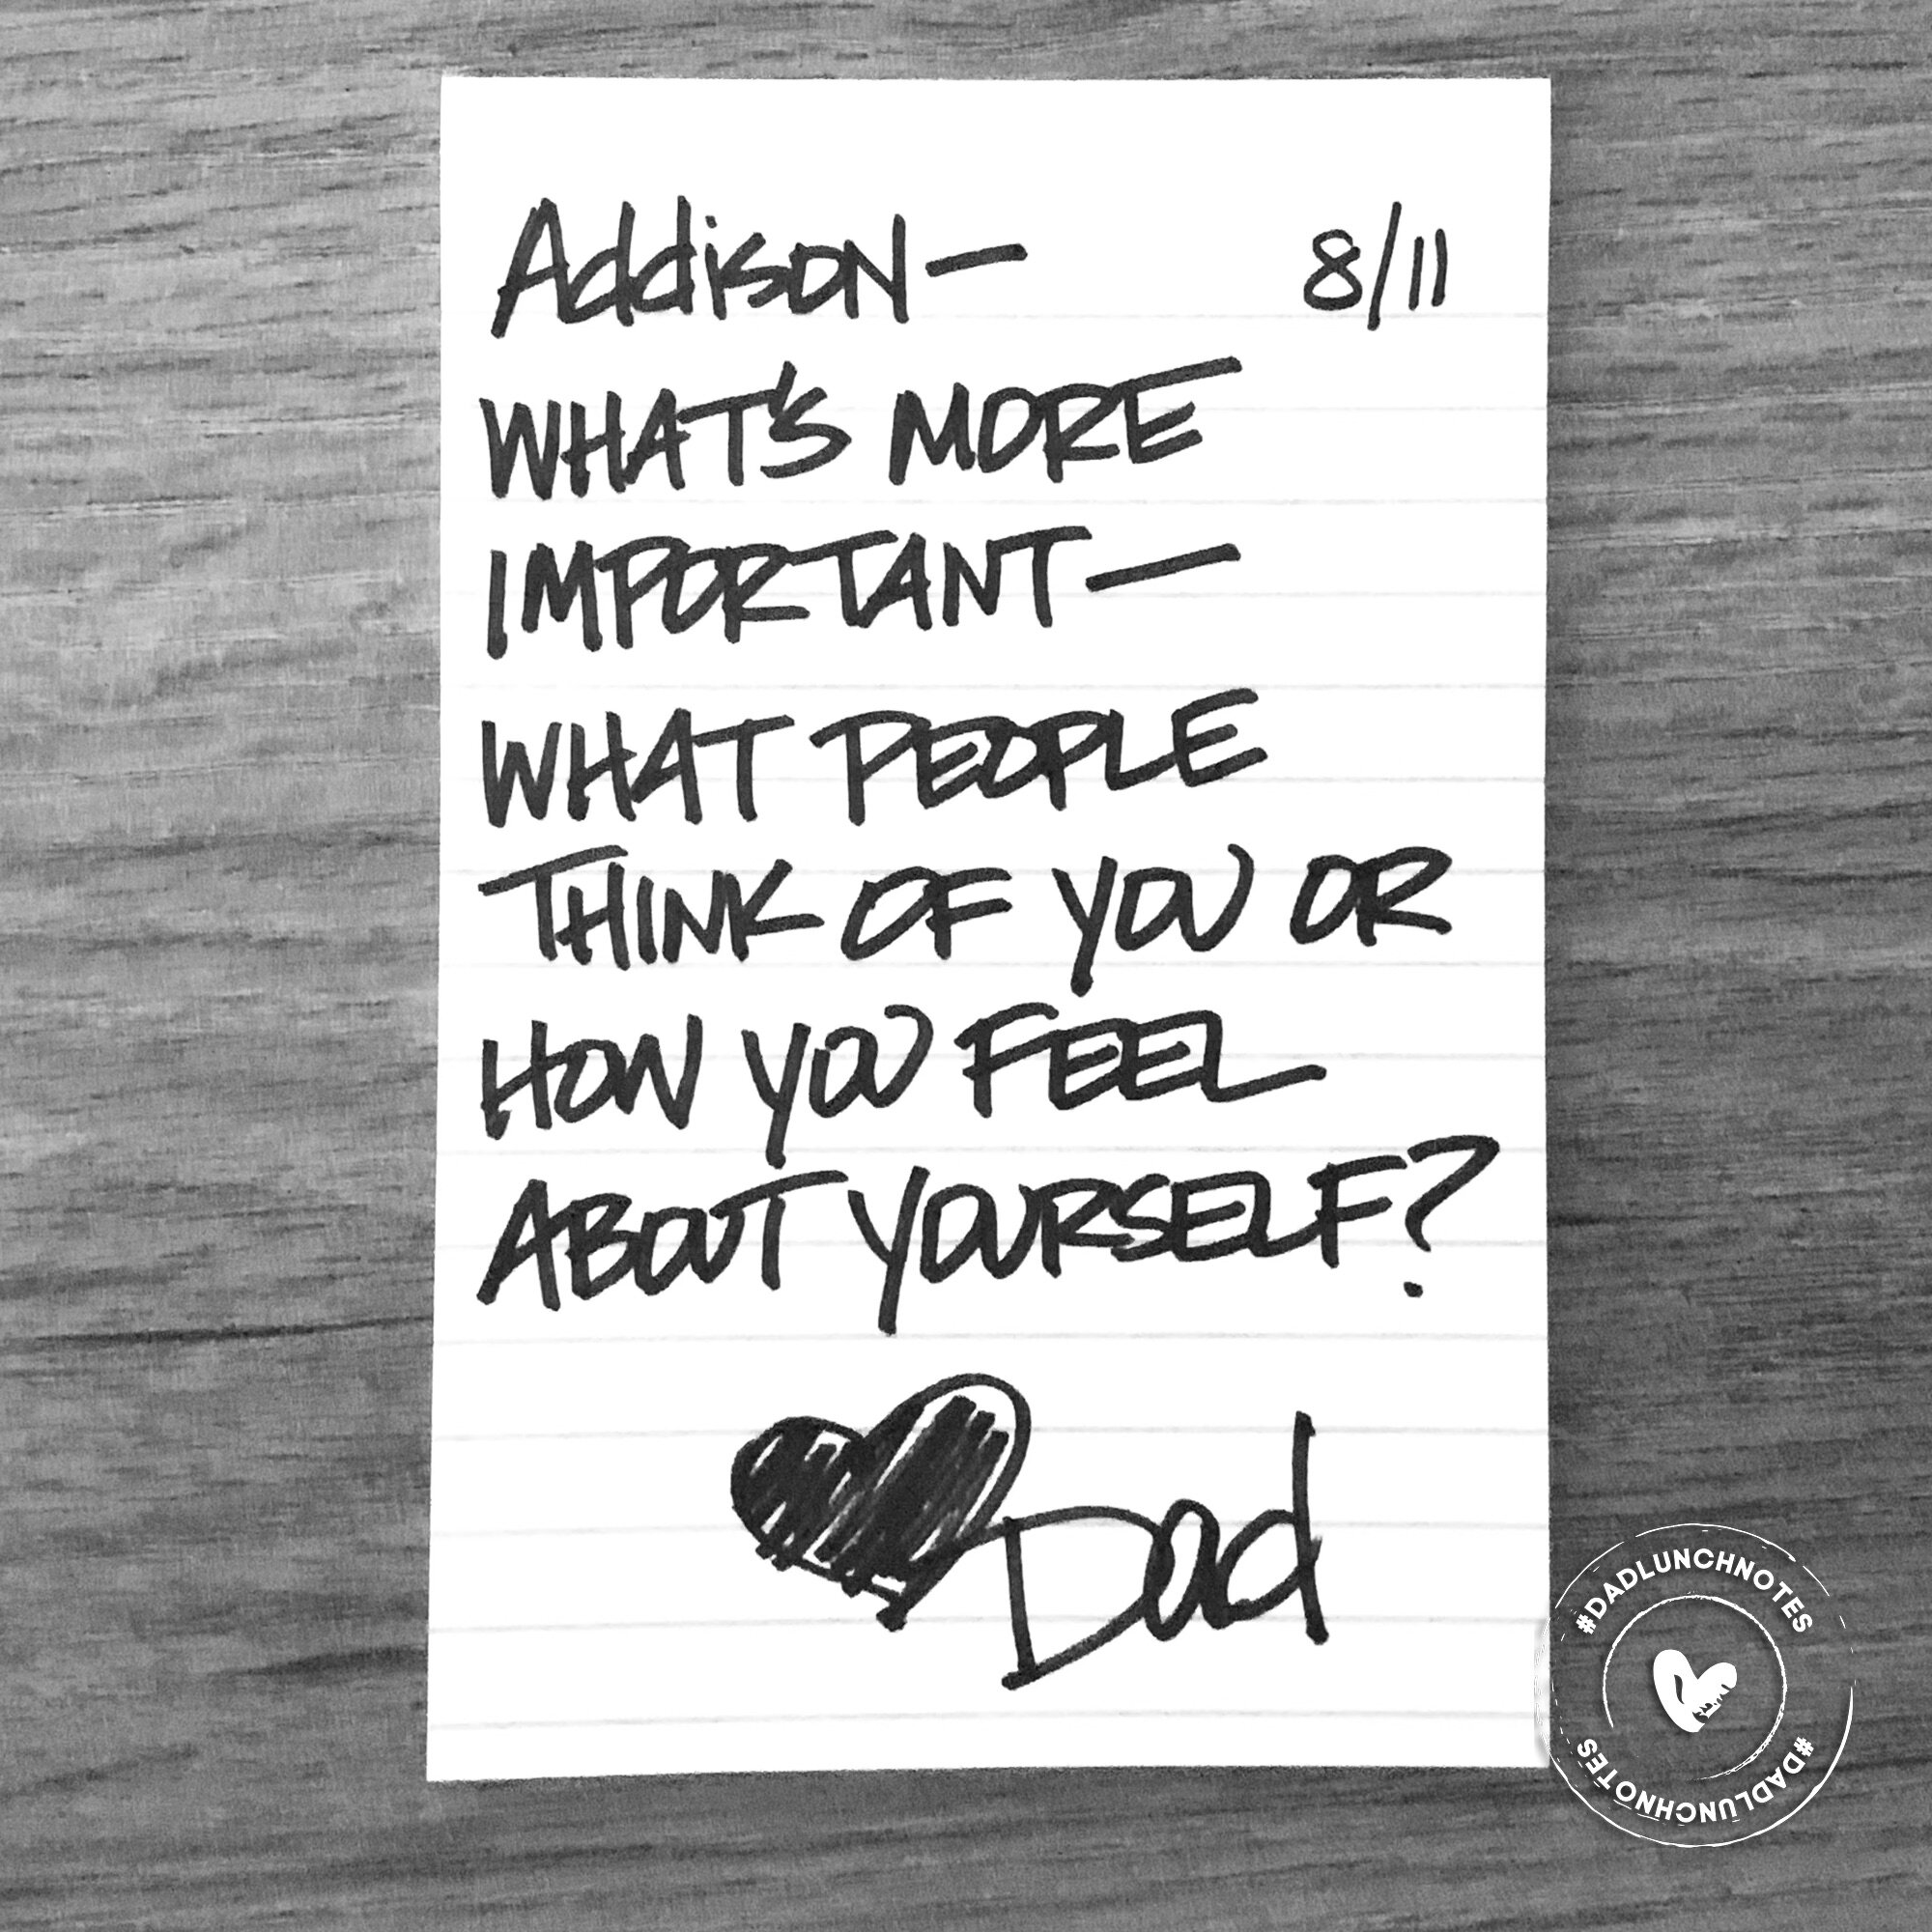 Addison— 8/11
WHAT'S MORE
IMPORTANT—
WHAT PEOPLE
THINK OF YOU OR
HOW YOU FEEL
ABOUT YOURSELF?
Dad
#DADLUNCHNOTES
#DADLUNCHNOTES